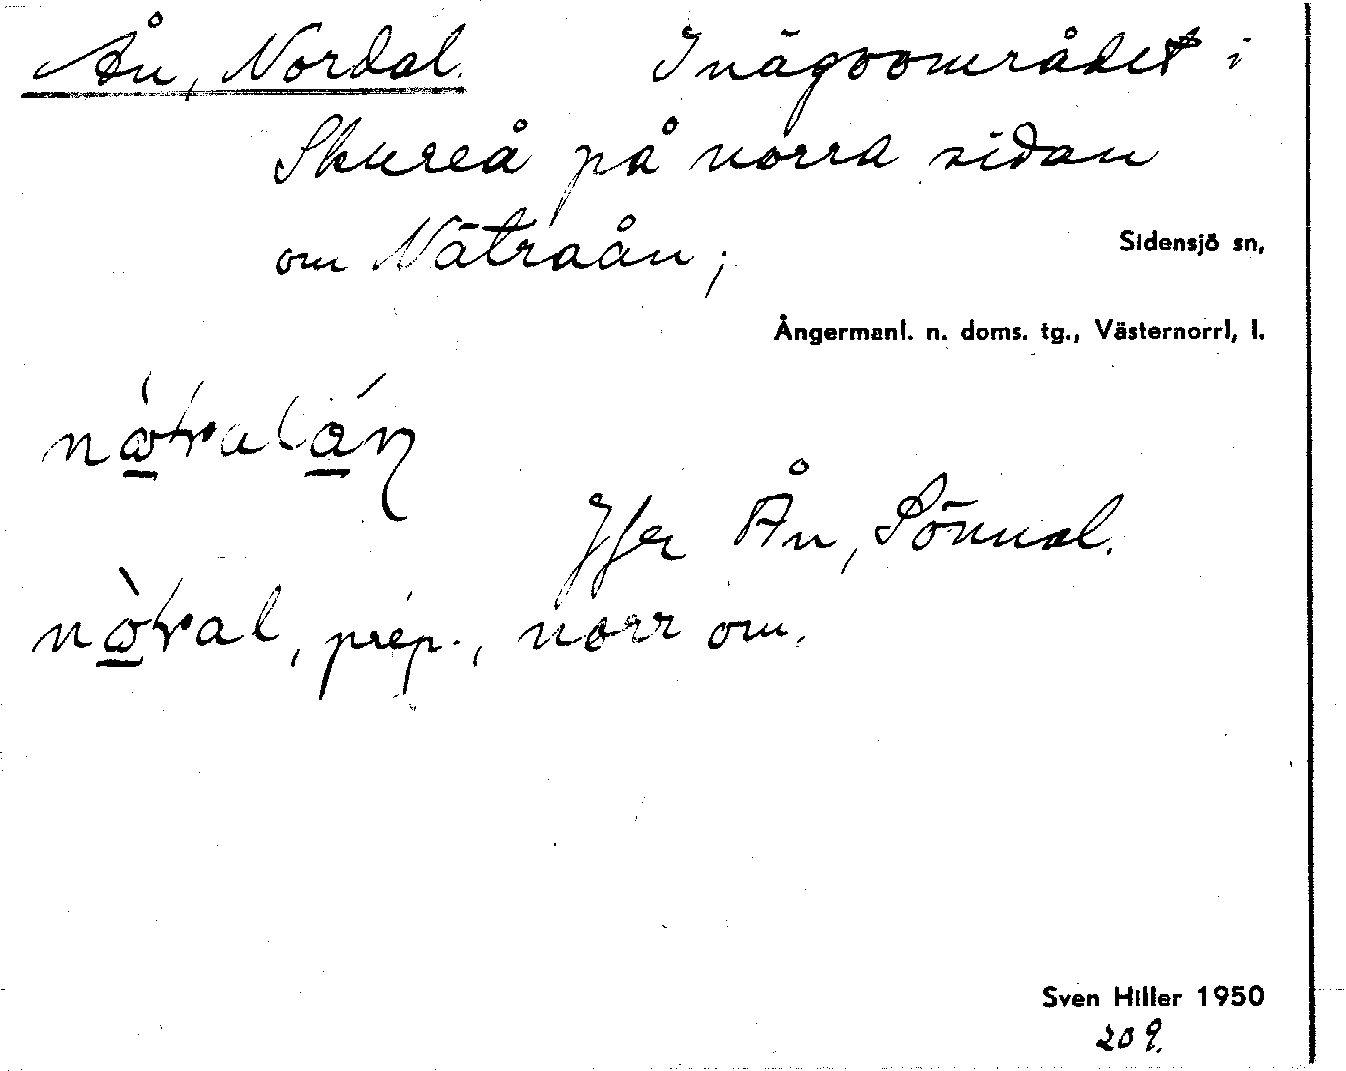 Ån, Nordal. Inägoområdet i
Skureå på norra sidan
om Nätraån;
Sidensjö sn,
Ångermanl. n. doms. tg., Västernorrl, l.
Jfr Ån, Sönnal.
prep., norr om.
Sven Hiller 1950
209.